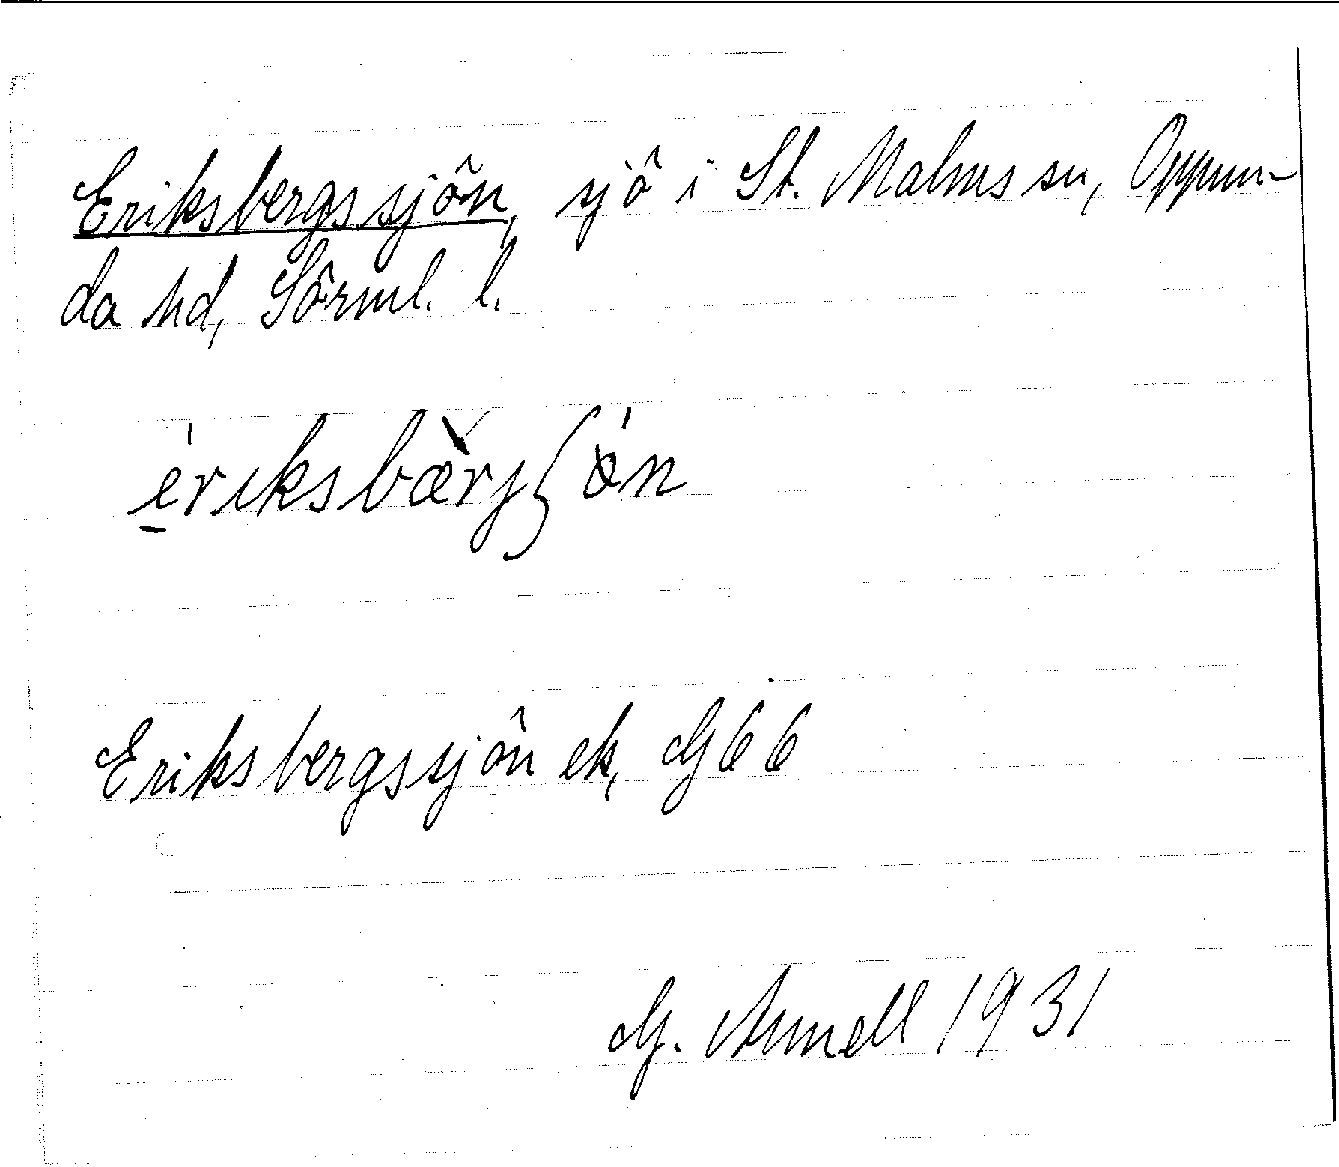 Eriksbergssjön, sjö i St. Malms sn, Oppun-
da hd, Sörml. l.
èriksbæ̀rjʃón
Eriksbergssjön ek, G66
G. Arnell 1931